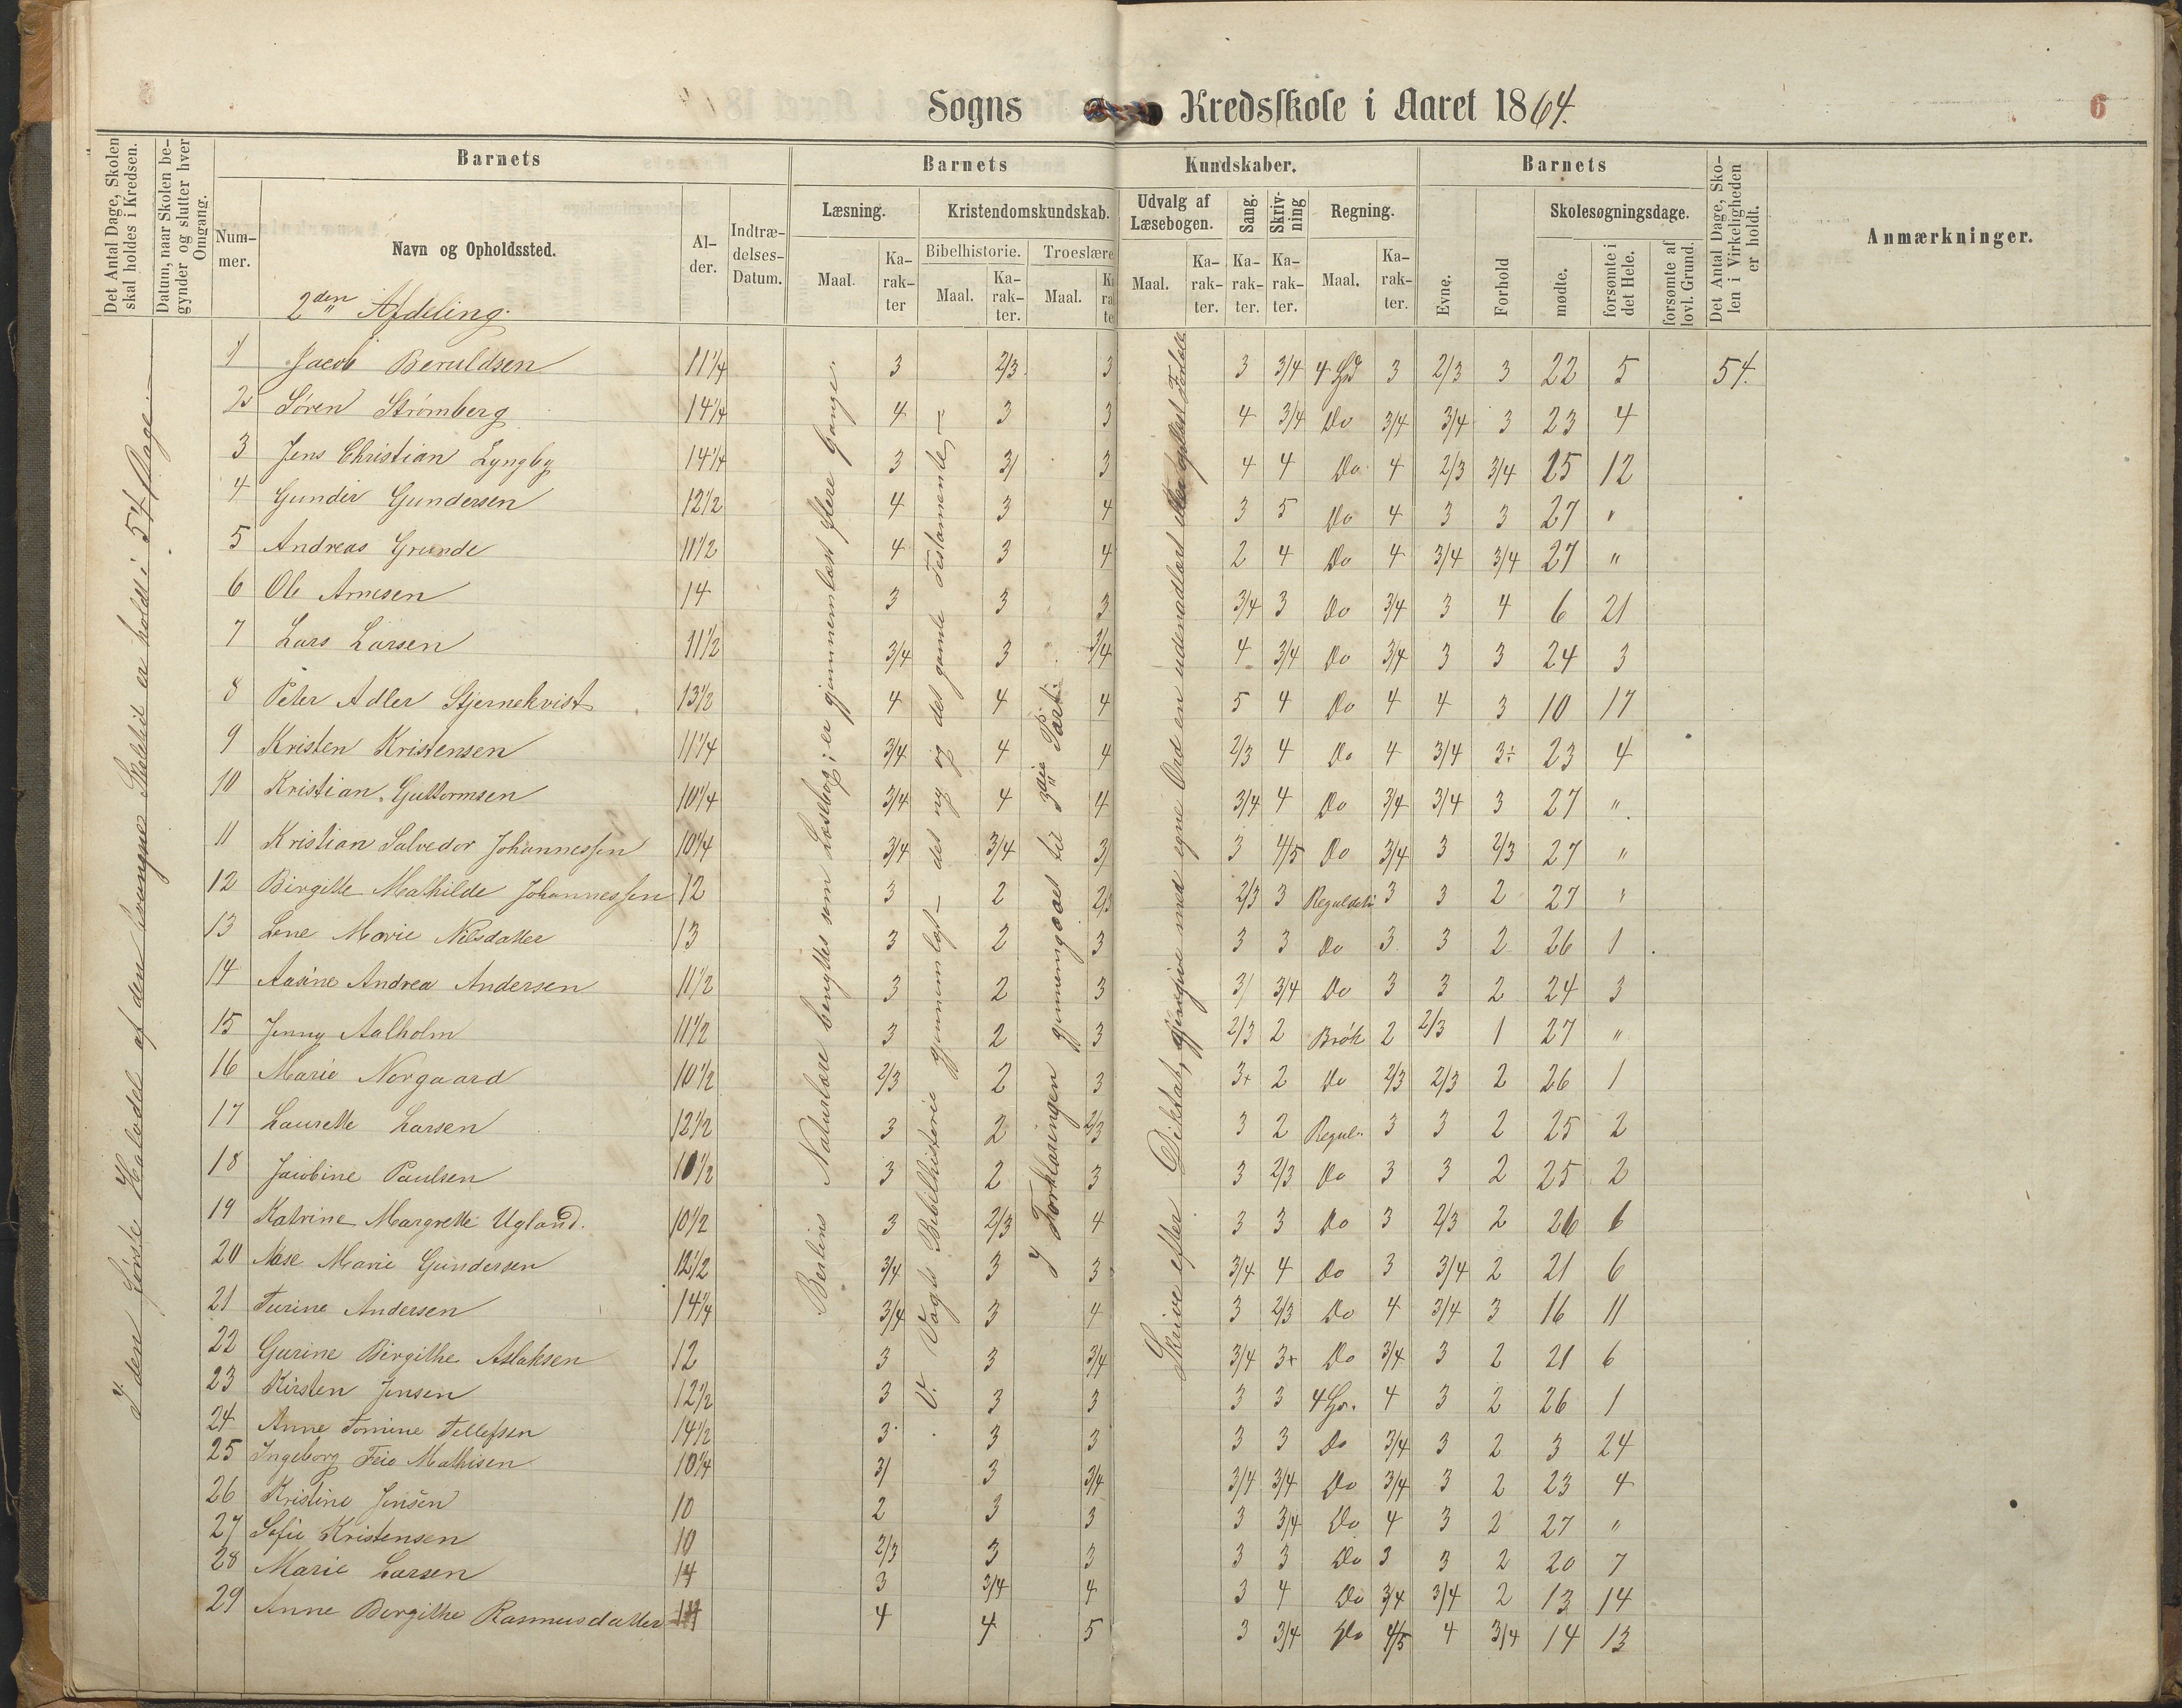 Sogns Kredsskole i Aaret 1864.
6
Det Antal Dage, Skolen skal holdes i Kredsen.
Datum, naar Skolen begynder og slutter hver Omgang.
Barnets
Barnets Kundskaber.
Barnets
Det Antal Dage, Skolen i Virkeligheden er holdt.
Anmærkninger.
Nummer.
Navn og Opholdssted.
Alder.
Indtrædelses-Datum.
Læsning.
Kristendomskundskab.
Udvalg af Læsebogen.
Sang.
Skrivning
Regning.
Evne.
Forhold
Skolesøgningsdage.
Bibelhistorie. Troeslære
Maal. Karakter Maal. Karakter. Maal. Maal. Karakter. Karakter. Karakter. Maal. Karakter.
mødte. forsømte i det Hele. forsømte af lovl. Grund.
2den Afdeling.
I den første Halvdel af den tvungne Skoletid er holdt i 54 Dage.
Bentens Naturlære benyttes som Læsebog; er gjennemlæst flere Gange.
V. Vogts Bibelhistorie gjennemlæst – det ny og det gamle Testamente –
I Forklaringen gjennemgaaet til 3die Part.
Skrive efter Diktat, gjengive med egne Ord en udenadlært eller oplæst Fortælle
1 Jacob Beruldsen 11¼ 3 2/3 3 3 3/4 4 Gd 3 2/3 3 22 5 54.
2 Søren Strømberg 14¼ 4 3 3 4 3/4 Do 3/4 3/4 3 23 4
3 Jens Christian Lyngby 14¼ 3 3/ 3 4 4 Do 4 2/3 3/4 15 12
4 Gunder Gundersen 12½ 4 3 4 3 5 Do 4 3 3 27 "
5 Andreas Grunde 11½ 4 3 4 2 4 Do 4 3/4 3/4 27 "
6 Ole Arnesen 14 3 3 3 3/4 3 Do 3/4 3 4 6 21
7 Lars Larsen 11½ 3/4 3 3/4 4 3/4 Do 3/4 3 3 24 3
8 Peter Adler Stjernekvist 13½ 4 4 4 5 4 Do 4 4 3 10 17
9 Kristen Kristensen 11¼ 3/4 4 4 2/3 4 Do 4 3/4 3÷ 23 4
10 Kristian Guttormsen 10¼ 3/4 4 4 3/4 4 Do 3/4 3/4 3 27 "
11 Kristian Salvedor Johannessen 10¼ 3/4 3/4 3/ 3 4/5 Do 3/4 3 2/3 27 "
12 Birgitte Mathilde Johannessen 12 3 2 2/3 2/3 3 Reguldetri 3 3 2 27 "
13 Lene Marie Nilsdatter 13 3 2 3 3 3 Do 3 3 2 26 1
14 Aasine Andrea Andersen 11½ 3 2 3 3/ 3/4 Do 3 3 2 24 3
15 Jenny Aalholm 11½ 3 2 3 2/3 2 Brøk 2 2/3 1 27 "
16 Marie Norgaard 10½ 2/3 2 3 3+ 2 Do 2/3 2/3 2 26 1
17 Laurette Larsen 12½ 3 2 2/3 3 2 Regul. 3 3 2 25 2
18 Jacobine Paulsen 10½ 3 2 3 3 2/3 Do 3 3 2 25 2
19 Katrine Margrethe Ugland. 10½ 3 2/3 4 3 3 Do 3 2/3 2 26 6
20 Aase Marie Gundersen 12½ 3/4 3 3 3/4 4 Do 3 3/4 2 21 6
21 Turine Andersen 14¼ 3/4 3 4 3 2/3 Do 4 3/4 3 16 11
22 Gurine Birgithe Aslaksen 12 3 3 3/4 3/4 3+ Do 3/4 3 2 21 6
23 Kirsten Jensen 12½ 3 3 3 3 3 4 Gr. 4 3 2 26 1
24 Anne Tomine Tellefsen 14½ 3 3 3 3 3 Do 3/4 3 2 3 24
25 Ingeborg Feie Mathisen 10¼ 3/ 3 3/4 3/4 3/4 Do 3/4 3 2 23 4
26 Kristine Jensen 10 2 3 3 3 3/4 Do 4 3 2 27 "
27 Sofie Kristensen 10 2/3 3 3 3 3 Do 3 3 2 20 7
28 Marie Larsen 14 3 3/4 4 3 4 Do 3/4 3/4 2 13 14
29 Anne Birgithe Rasmusdatter 4 4 5 3 3/4 Do 4/5 4 3/4 14 13